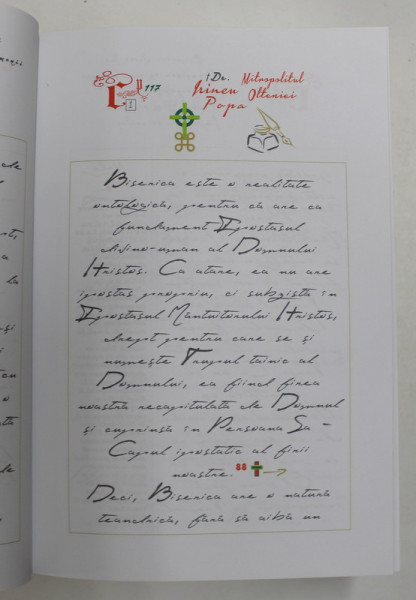 117
Dr. Mitropolitul
Irineu Olteniei
Popa
Biserica este o realitate
ontologică, pentru că are ca
fundament Ipostasul
divino-uman al Domnului
Hristos. Ca atare, ea nu are
ipostas propriu, ci subzistă în
Ipostasul Mântuitorului Hristos,
drept pentru care se și
numește Trupul tainic al
Domnului, ea fiind firea
noastră recapitulată de Domnul
și cuprinsă în Persoana Sa -
Capul ipostatic al firii
noastre. 88
Deci, Biserica are o natură
teandrică, fără să aibă un